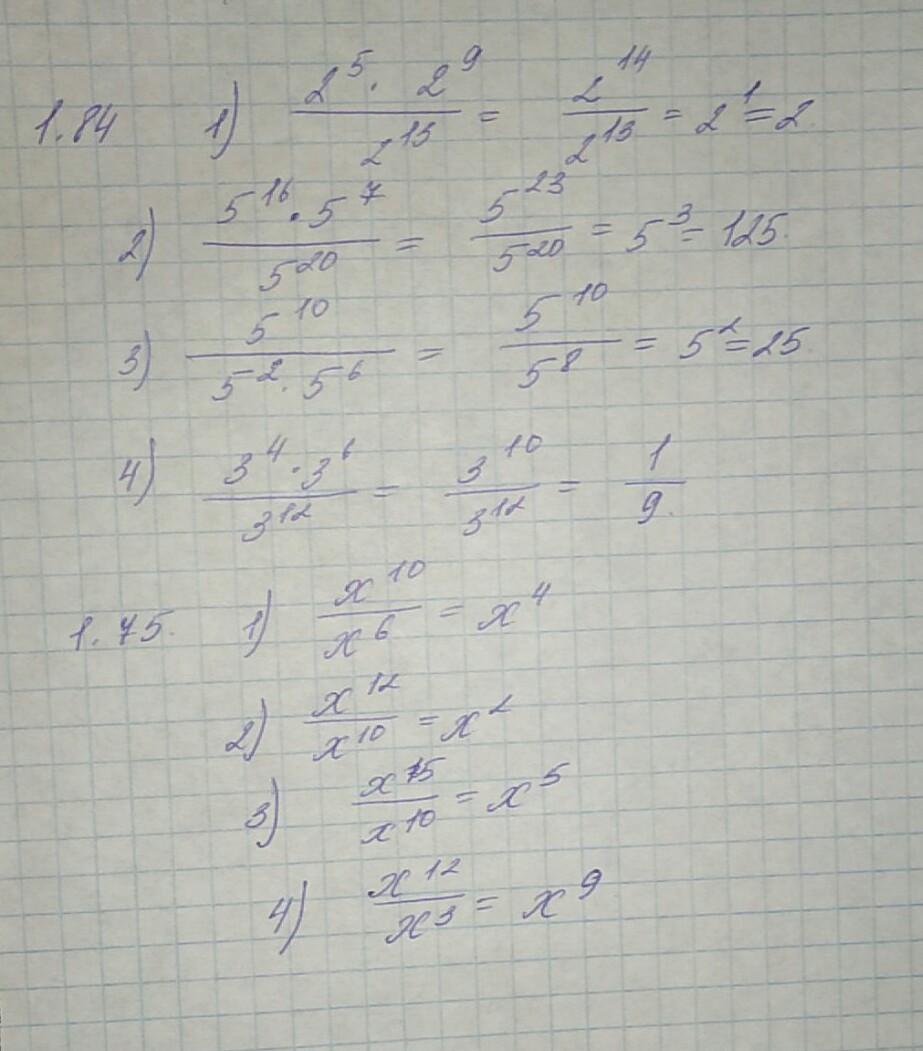 1.84 1) \frac{2^5 · 2^9}{2^{13}} = \frac{2^{14}}{2^{13}} = 2^1 = 2.
2) \frac{5^{16} · 5^7}{5^{20}} = \frac{5^{23}}{5^{20}} = 5^3 = 125.
3) \frac{5^{10}}{5^2 · 5^6} = \frac{5^{10}}{5^8} = 5^2 = 25.
4) \frac{3^4 · 3^6}{3^{12}} = \frac{3^{10}}{3^{12}} = \frac{1}{9}.
1.75. 1) \frac{x^{10}}{x^6} = x^4
2) \frac{x^{12}}{x^{10}} = x^2
3) \frac{x^{15}}{x^{10}} = x^5
4) \frac{x^{12}}{x^3} = x^9